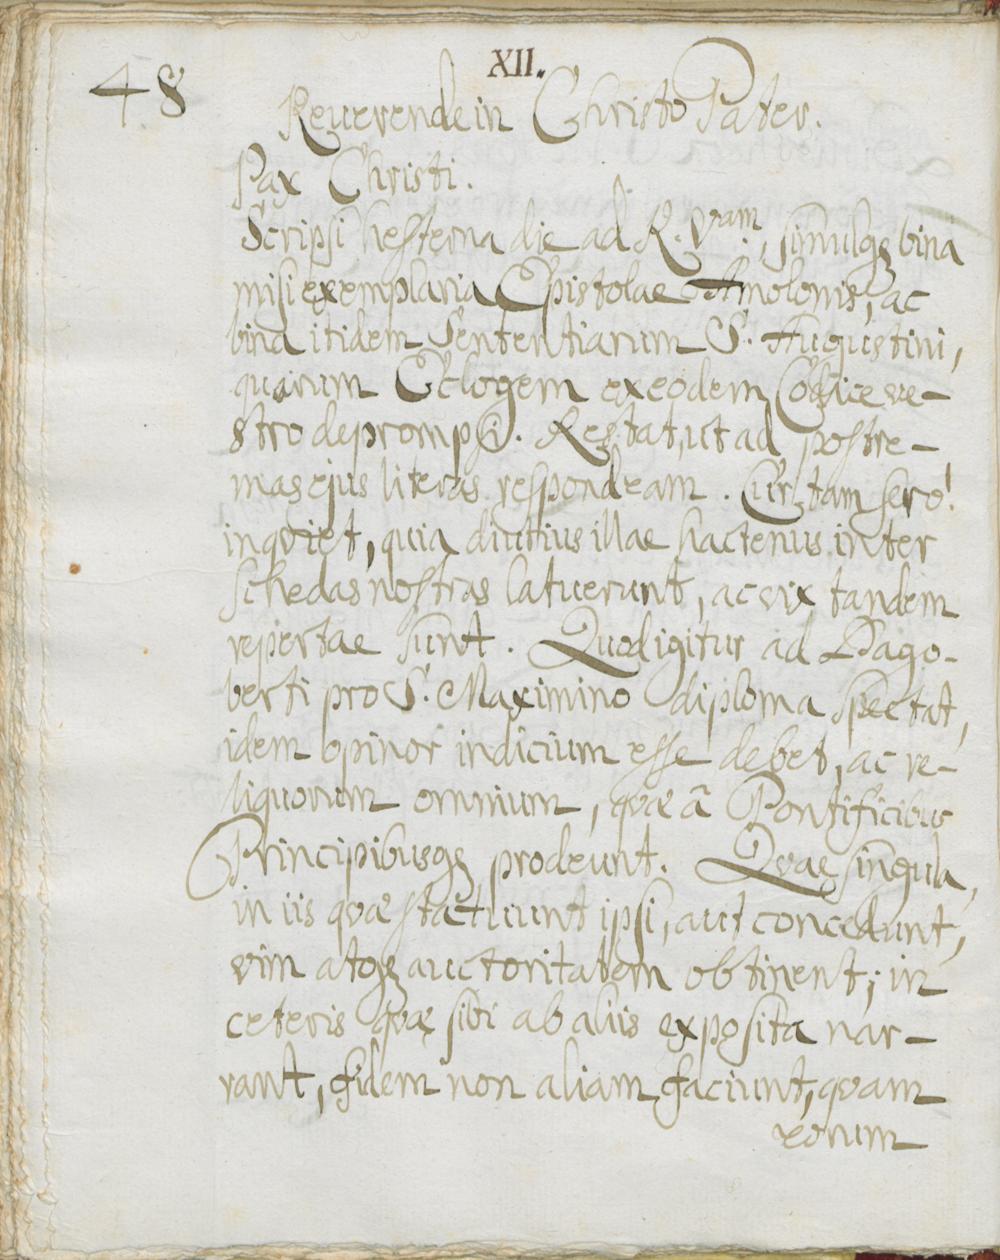 48
XII.
Reverende in Christo Pater.
Pax Christi.
Scripsi hesterna die ad R. Vam, simulq; bina
misi exemplaria Epistolae Amolonis, ac
bina itidem Sententiarum S. Augustini,
quarum Eclogem ex eodem Codice ve-
stro deprompsi. Restat, ut ad postre-
mas ejus literas respondeam. Cur tam sero!
inqviet, quia diutius illae hactenus inter
schedas nostras latuerunt, ac vix tandem
repertae sunt. Quod igitur ad Dago-
berti pro S. Maximino diploma spectat,
idem opinor indicium esse debet, ac re-
liquorum omnium, qvae â Pontificibus
Principibusq; prodeunt. Qvae singula,
in iis qvae statuunt ipsi, aut concedunt,
vim atq; auctoritatem obtinent; in
ceteris qvae sibi ab aliis exposita nar-
rant, fidem non aliam faciunt, qvam
eorum